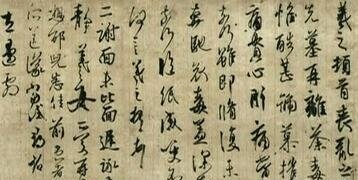 羲之頓首喪亂之
先墓再離荼毒
惟酷甚號慕摧
痛貫心肝痛當
奈何雖即脩復未
奔馳哀毒益深
奈何臨紙感哽
何言羲之頓首
二謝面未比面遲詠
靜羲之女愛再
想邵兒悉佳前患者
左邊劇